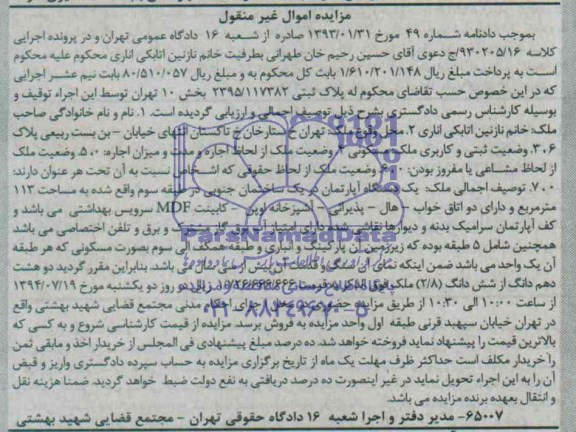 مزایده اموال غیر منقول
بموجب دادنامه شماره ۴۹ مورخ ۱۳۹۳/۰۱/۳۱ صادره از شعبه ۱۶ دادگاه عمومی تهران و در پرونده اجرایی
کلاسه ۹۳۰۲۰۵/۱۶/ج دعوی آقای حسین رحیم خان طهرانی بطرفیت خانم نازنین اتابکی اناری محکوم علیه محکوم
است به پرداخت مبلغ ریال ۱/۶۱۰/۲۰۱/۱۴۸ بابت کل محکوم به و مبلغ ریال ۸۰/۵۱۰/۰۵۷ بابت نیم عشر اجرایی
که در این خصوص حسب تقاضای محکوم له پلاک ثبتی ۲۳۹۵/۱۱۷۳۸۲ بخش ۱۰ تهران توسط این اجراء توقیف و
بوسیله کارشناس رسمی دادگستری بشرح ذیل توصیف اجمالی و ارزیابی گردیده است. ۱. نام و نام خانوادگی صاحب
ملک: خانم نازنین اتابکی اناری ۲. محل وقوع ملک: تهران خ ستارخان خ تاکستان انتهای خیابان – بن بست ربیعی پلاک
۳.۶. وضعیت ثبتی و کاربری ملک: مسکونی ۴. وضعیت ملک از لحاظ اجاره و مدت و میزان اجاره ۵.۰. وضعیت ملک
از لحاظ مشاعی یا مفروز بودن: ۶.۰. وضعیت ملک از لحاظ حقوقی که اشخاص نسبت به آن تحت هر عنوان دارند:
۷.۰. توصیف اجمالی ملک: یک دستگاه آپارتمان در یک ساختمان جنوبی در طبقه سوم واقع شده به مساحت ۱۱۳
مترمربع و دارای دو اتاق خواب – هال – پذیرائی – آشپزخانه اوپن – کابینت MDF سرویس بهداشتی می باشد و
کف آپارتمان سرامیک بدنه و دیوارها نقاشی شده دارای امتیاز آب و گاز مشترک و برق و تلفن اختصاصی می باشد
همچنین شامل ۵ طبقه بوده که زیرزمین آن پارکینگ و انباری و طبقه همکف الی سوم بصورت مسکونی که هر طبقه
آن یک واحد می باشد ضمن اینکه نمای آن سنگ و قدمت آن بیش از سال می باشد. بنابراین مقرر گردید دو هشت
دهم دانگ از شش دانگ (۲/۸) ملک فوق ریال در روز دو یکشنبه مورخ ۱۳۹۴/۰۷/۱۹
از ساعت ۱۰:۰۰ الی ۱۰:۳۰ از طریق مزایده حضوری در محل اجرای احکام مدنی مجتمع قضایی شهید بهشتی واقع
در تهران خیابان سپهبد قرنی طبقه اول واحد مزایده به فروش برسد. مزایده از قیمت کارشناسی شروع و به کسی که
بالاترین قیمت را پیشنهاد نماید فروخته خواهد شد. ده درصد مبلغ پیشنهادی فی المجلس از خریدار اخذ و مابقی ثمن
را خریدار مکلف است حداکثر ظرف مهلت یک ماه از تاریخ برگزاری مزایده به حساب سپرده دادگستری واریز و قبض
آن را به این اجراء تحویل نماید در غیر اینصورت ده درصد دریافتی به نفع دولت ضبط خواهد گردید. ضمنا هزینه نقل
و انتقال بعهده برنده مزایده می باشد.
۶۵۰۰۷– مدیر دفتر و اجرا شعبه ۱۶ دادگاه حقوقی تهران – مجتمع قضایی شهید بهشتی
ParsNamadData
۰۲۱-۸۸۳۴۹۶۷۰-۵